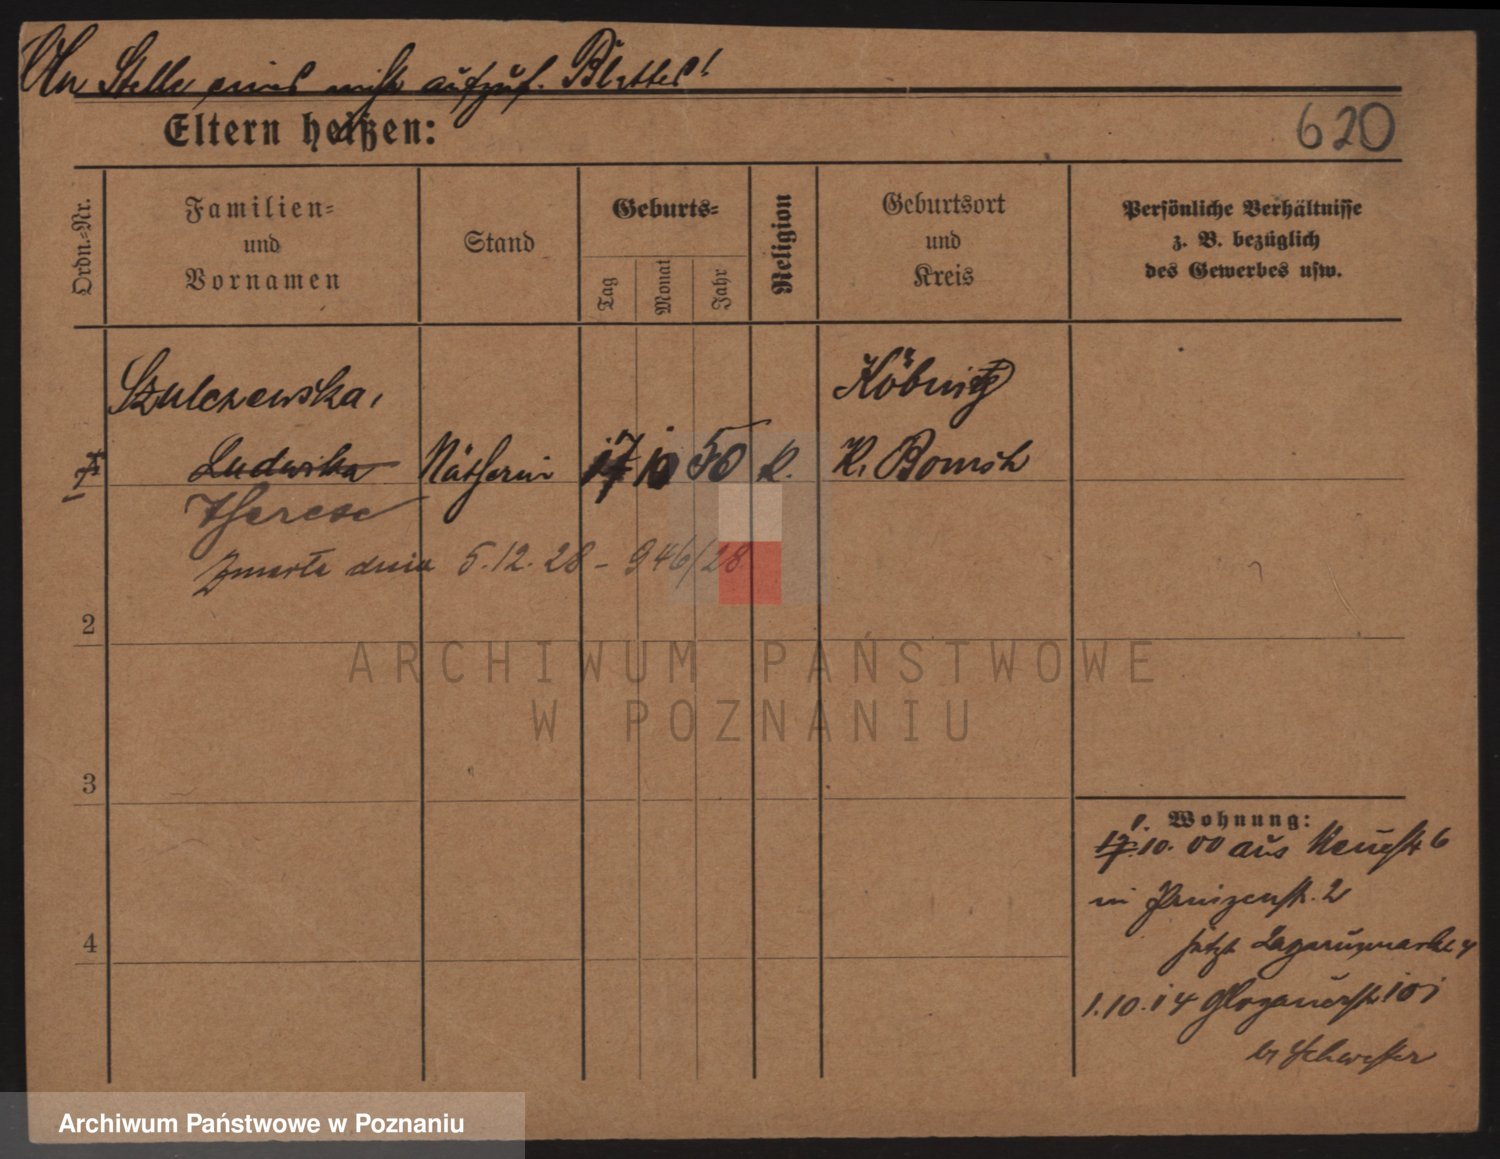 An Stelle eines nicht aufzuf. Blattes!
Eltern heißen:
620
Ordn.-Nr.
Familien- und Vornamen
Stand
Geburts-
Tag
Monat
Jahr
Religion
Geburtsort und Kreis
Persönliche Verhältnisse z. B. bezüglich des Gewerbes usw.
Szulczewska,
Köbnitz
1
Ludwika
Nätherin
17 10 50 k.
K. Bomst
Therese
Zmarła dnia 5.12.28 – 946/28
2
ARCHIWUM PAŃSTWOWE
W POZNANIU
3
Wohnung:
10. 00 aus Neuestr 6
in Prinzenstr. 2
jetzt Lazarusmarkt 4
4
1.10.14 Glogauerstr 101
b/ Schwester
Archiwum Państwowe w Poznaniu